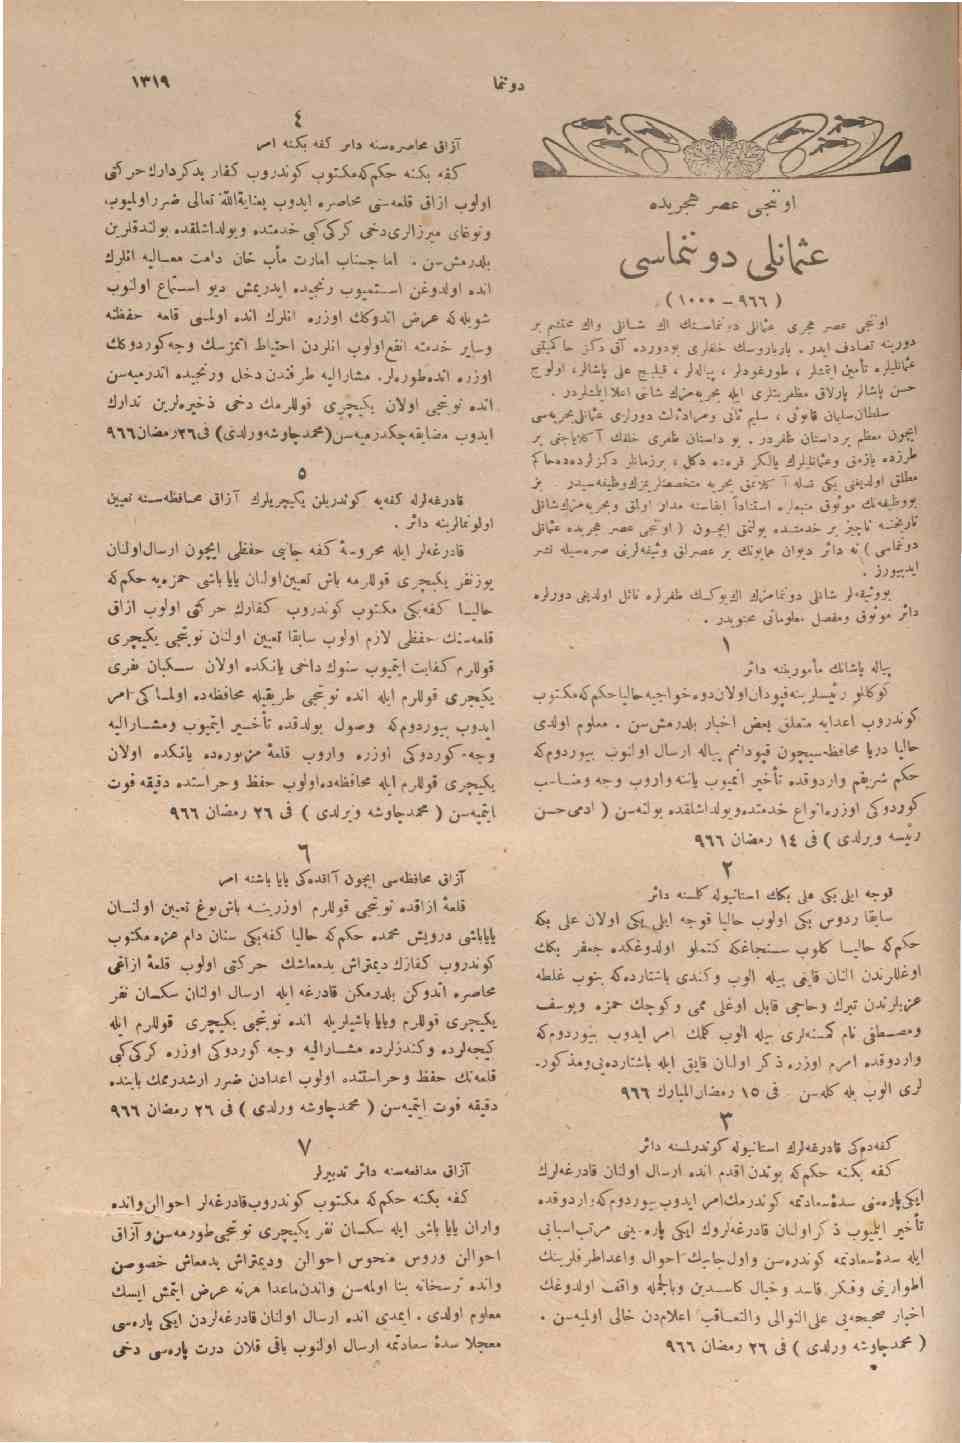 دوننما
١٣١٩
اوننجی عصر هجریده
عثمانلی دوننماسی
( ٩٦٦ – ١٠٠٠ )
اوننجی عصر هجری عثمانلی دوننماسنك اك شانلی واك محتشم بر
دورینه تصادف ایدر . بارباروسك خلفلری بودورده آق دكز حاكمیتنی
عثمانلیلره تأمین ایتمشلر ، طورغودلر ، پیالهلر ، قیلیچ علی پاشالر ، اولوج
حسن پاشالر پارلاق مظفریتلری ایله بحریهمزك شاننی اعلا ایلمشلردر .
سلطان سلیمان قانونی ، سلیم ثانی ومراد ثالث دورلری عثمانلی بحریهسی
ایچون معظم بر داستان ظفردر . بو داستان ظفری خلفك آكلایاجغی بر
طرزده یازمق وعثمانلیلرك یالكز قرهده دكل ، بر زمانلر دكزلرده ده حاكم
مطلق اولدیغنی یكی نسله آكلاتمق بحریه متخصصلریمزك وظیفهسیدر . بز
بووظیفهنك موثوق منبعلره استناداً ایفاسنه مدار اولمق وبحریهمزك شانلی
تاریخنه ناچیز بر خدمتده بولنمق ایچون ( اوننجی عصر هجریده عثمانلی
دوننماسی ) نه دائر دیوان همایونك بر عصرلق وثیقهلرینی صرهسیله نشر
ایدییورز .
بووثیقهلر شانلی دوننمامزك اك بوكسك ظفرلره نائل اولدیغی دورلره
دائر موثوق ومفصل معلوماتی محتویدر .
١
پیاله پاشانك مأموریتنه دائر
كوكللو رئیسلرینه قپودان اولان دوه خواجیه حالیا حكم كه مكتوب
كوندروب اعدایه متعلق بعض اخبار بلدرمش سن . معلوم اولدی
حالیا دریا محافظهسیچون قپودانم پیاله ارسال اولنوب بیوردوم كه
حكم شریفم واردوقده تأخیر اتمیوب یاننه واروب وجه ومناسب
كوردوكی اوزره انواع خدمتده وبولداشلقده بولنهسن ( ادمی حسن
رئیسه ویرلدی ) فی ١٤ رمضان ٩٦٦
٢
قوجه ایلی بكی علی بكك استانبوله كلسنه دائر
سابقا ردوس بكی اولوب حالیا قوجه ایلی بكی اولان علی بكه
حكم كه حالیا كلوب سنجاغكه كتملو اولدوغكده جعفر بكك
اوغللرندن النان قایغی بیله الوب وكندی باشتارده كه بنوب غلطه
عزبلرندن تیرك وحاجی قابل اوغلی ممی وكوچك حمزه ویوسف
ومصطفی نام كمسنهلری بیله الوب كلمك امر ایدوب بیوردوم كه
واردوقده امرم اوزره ذكر اولنان قایق ایله باشتاردهیی ومذكور-
لری الوب بله كلهسن . فی ١٥ رمضان المبارك ٩٦٦
٣
كفهدهكی قادرغهلرك استانبوله كوندرلمسنه دائر
كفه بكنه حكم كه بوندن اقدم انده ارسال اولنان قادرغهلرك
ایكی پارهسنی سدۀ سعادتمه كوندرمك امر ایدوب بیوردوم كه واردوقده
تأخیر ایلمیوب ذكر اولنان قادرغهلروك ایكی پارهسینی مرتب اسبابی
ایله سدۀ سعادتمه كوندرهسن واول جانبك احوال واعداطرفلرینك
اطوارینی وفكر فاسد وخیال كاسدین وبالجمله واقف اولدوغك
اخبار صحیحهیی علی التوالی والتعاقب اعلامدن خالی اولمیهسن .
( محمد چاوشه ورلدی ) فی ٢٦ رمضان ٩٦٦
٤
آزاق محاصرهسنه دائر كفه بكنه امر
كفه بكنه حكم كه مكتوب كوندروب كفار بدكردارك حركتی
اولوب ازاق قلعهسنی محاصره ایدوب بعنایة الله تعالی ضرر اولمیوب
ونوغای میرزالری دخی كرك كی خدمتده وبولداشلقده بولندقلرین
بلدرمش سن . اما جناب امارت مآب خان دامت معالیه انلرك
انده اولدوغن استمیوب رنجیده ایدرمش دیو استماع اولنوب
شویله كه عرض اندوكك اوزره انلرك انده اولمسی قلعه حفظنه
وسایر خدمته انفع اولوب انلردن احتیاط اتمزسك وجه كوردوكك
اوزره انده طورهلر . مشارالیه طرفندن دخل ورنجیده اتدرمیهسن
انده نوبتجی اولان یكیچری قوللرمك دخی ذخیرهلرین تدارك
ایدوب مضایقه چكدرمیهسن (محمد چاوشه ورلدی) فی ٢٦ رمضان ٩٦٦
٥
قادرغهلرله كفهیه كوندریلن یكیچریلرك آزاق محافظهسنه تعیین
اولونمالرینه دائر .
قادرغهلر ایله محروسۀ كفه جانبی حفظی ایچون ارسال اولنان
یوز نفر یكیچری قوللرمه باش تعیین اولنان یایا باشی حمزهیه حكم كه
حالیا كفه بكی مكتوب كوندروب كفارك حركتی اولوب ازاق
قلعهسنك حفظی لازم اولوب سابقا تعیین اولنان نوبتجی یكیچری
قوللرم كفایت ایتمیوب سنوك داخی یانكده اولان سكبان نفری
یكیچری قوللرم ایله انده نوبتجی طریقیله محافظهده اولمسا كی امر
ایدوب بیوردوم كه وصول بولدقده تأخیر ایتمیوب ومشارالیه
وجه كوردوكی اوزره واروب قلعۀ مزبورهده یانكده اولان
یكیچری قوللرم ایله محافظهده اولوب حفظ وحراستده دقیقه فوت
ایتمیهسن ( محمد چاوشه ویرلدی ) فی ٢٦ رمضان ٩٦٦
٦
آزاق محافظهسی ایچون آزاقدهكی یایا باشنه امر
قلعۀ ازاقده نوبتجی قوللرم اوزرینه باش بوغ تعیین اولنان
یایاباشی درویش محمده حكم كه حالیا كفه بكی سنان دام عزه مكتوب
كوندروب كفارك دیمتراش بدمعاشك حركتی اولوب قلعۀ ازاقی
محاصره اتدوكن بلدرمكن قادرغه ایله ارسال اولنان سكسان نفر
یكیچری قوللرم ویایا باشیلریله انده نوبتجی یكیچری قوللرم ایله
كیجهلرده وكندزلرده مشارالیه وجه كوردوكی اوزره كرك كی
قلعهنك حفظ وحراستنده اولوب اعدادن ضرر ارشدرمك بابنده
دقیقه فوت ایتمیهسن ( محمد چاوشه ورلدی ) فی ٢٦ رمضان ٩٦٦
٧
آزاق مدافعهسنه دائر تدبیرلر
كفه بكنه حكم كه مكتوب كوندروب قادرغهلر احوالن وانده
واران یایا باشی ایله سكسان نفر یكیچری نوبتجی طورمهسن وآزاق
احوالن وروس منحوس احوالن ودیمتراش بدمعاش خصوصن
وانده ترسخانه بنا اولمهسن واندن ماعدا هر نه عرض ایتمش ایسك
معلوم اولدی . ایمدی انده ارسال اولنان قادرغهلردن ایكی پارهسی
معجلا سدۀ سعادتمه ارسال اولنوب باقی قلان درت پارهسی دخی